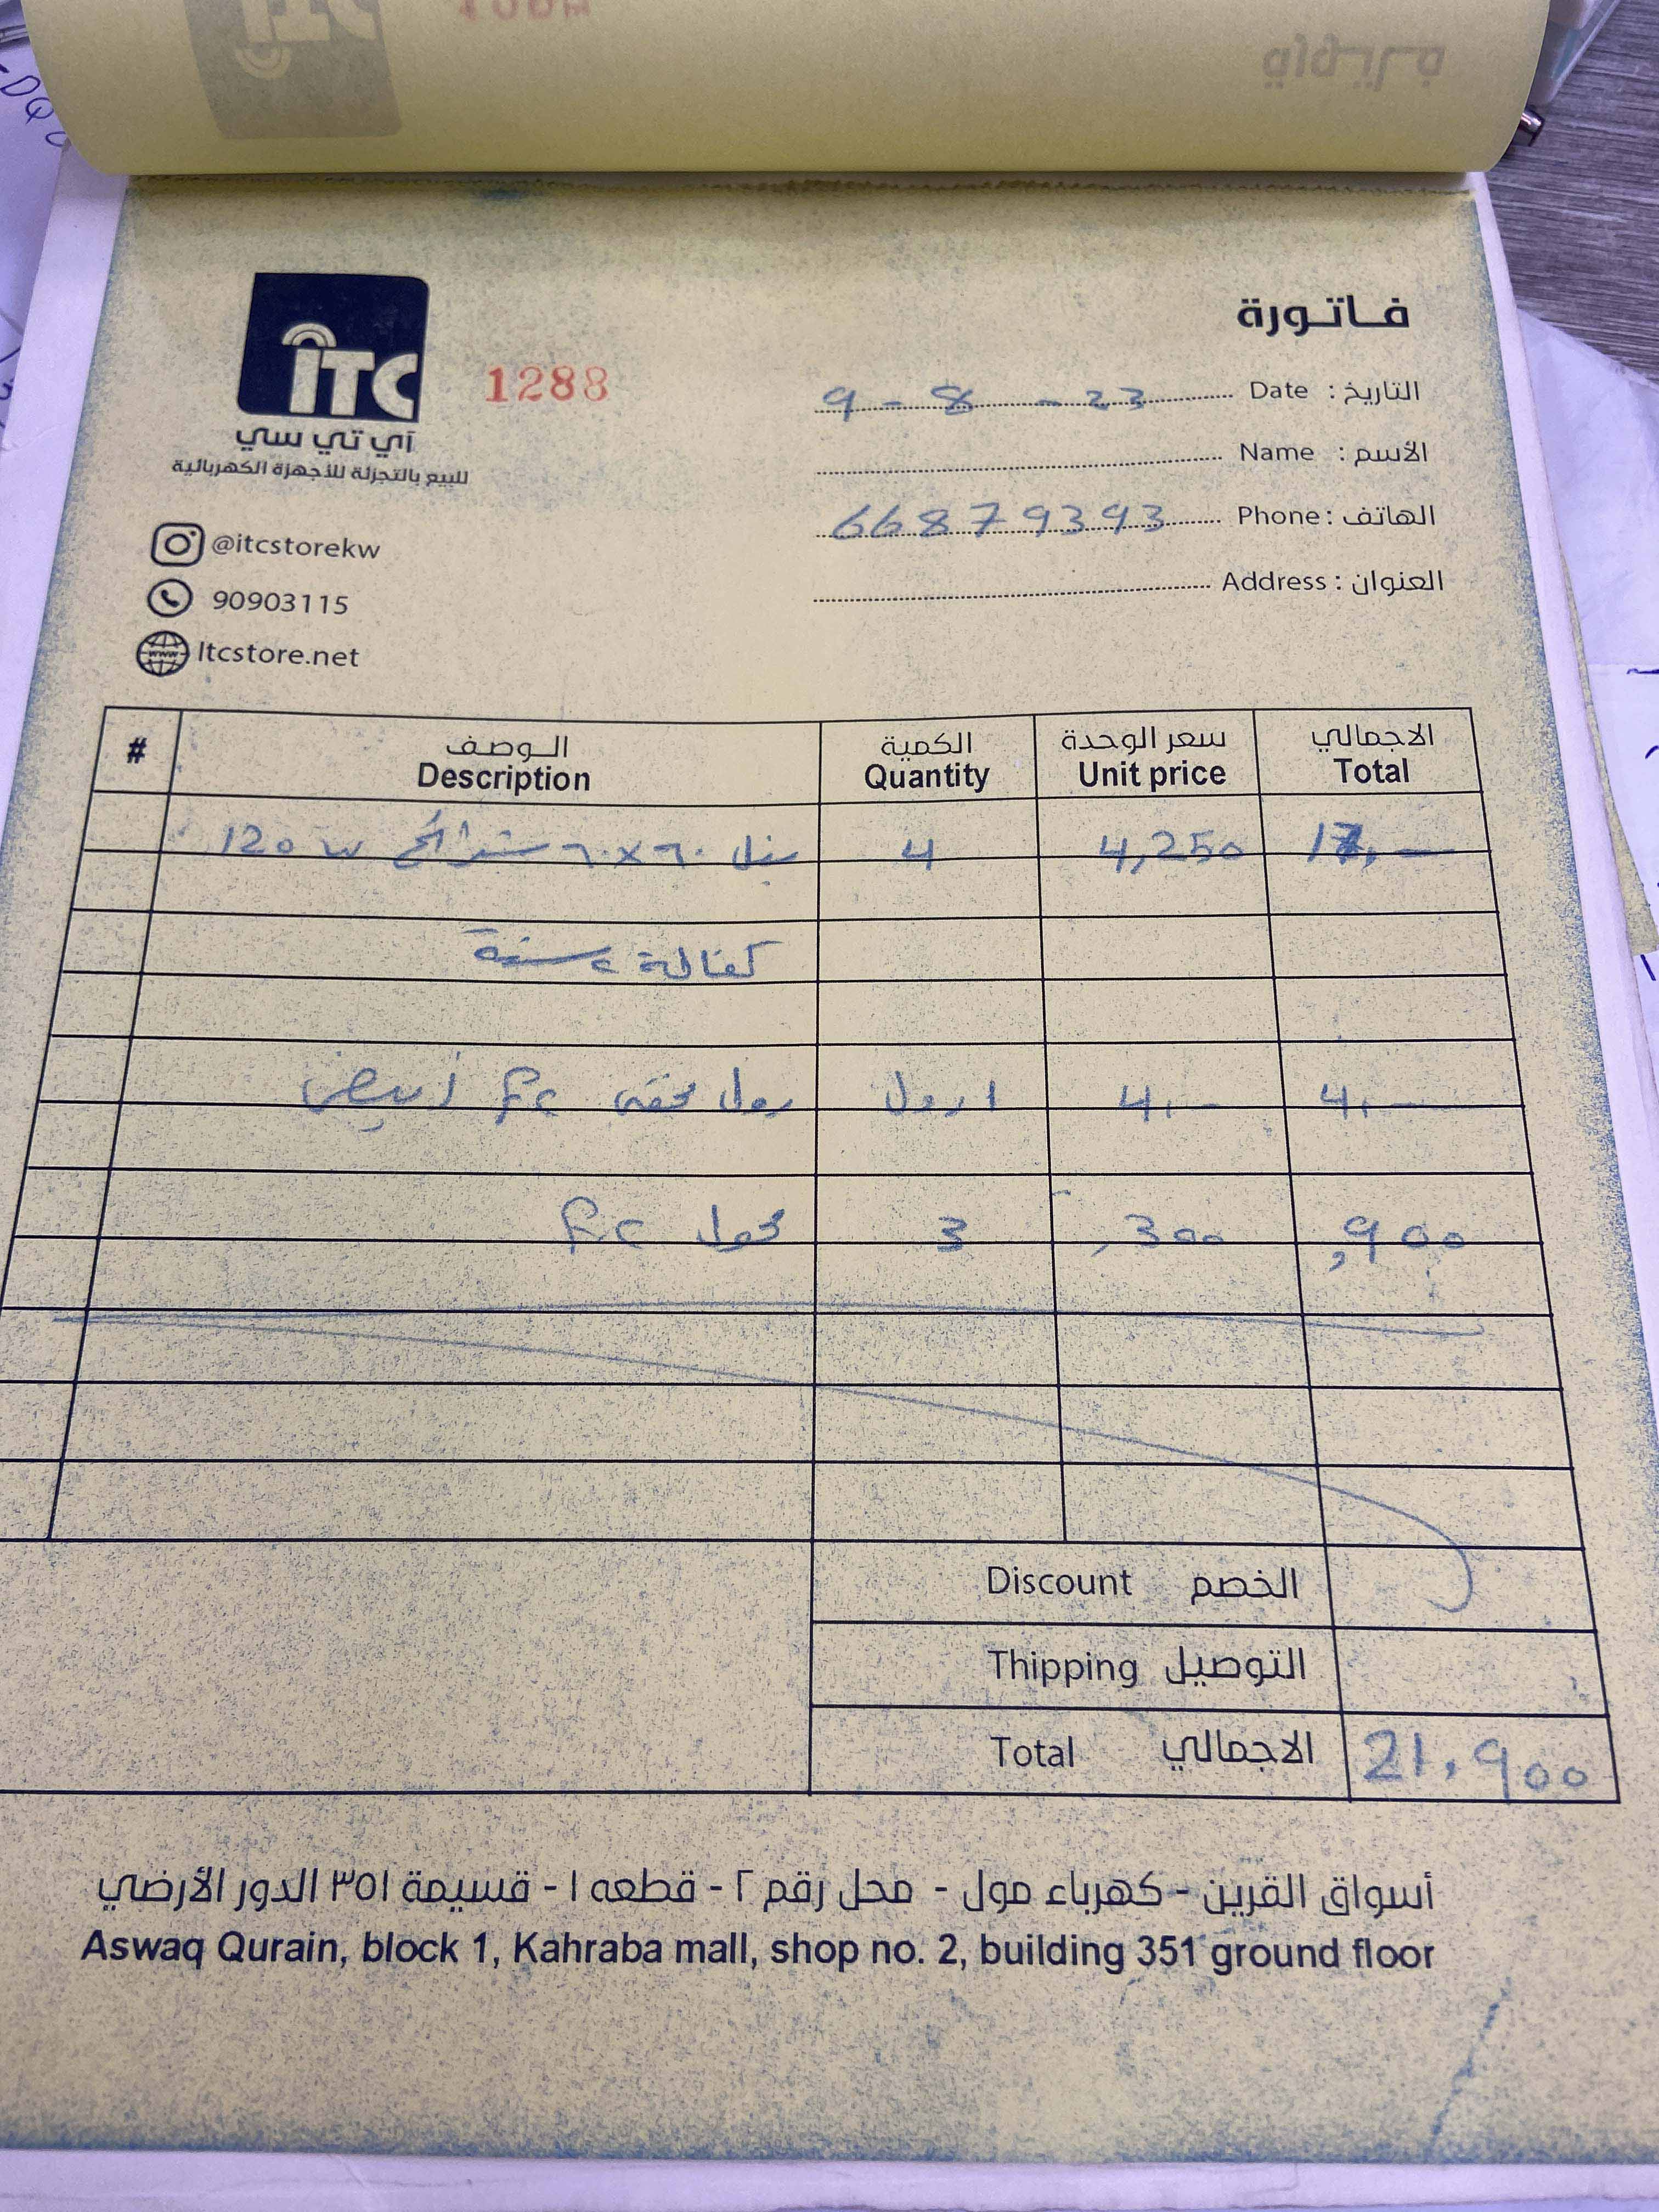 فاتورة
ITC
آي تي سي
للبيع بالتجزئة للأجهزة الكهربائية
1288
التاريخ : Date 9 - 8 - 23
الأسم : Name
الهاتف : Phone 66879393
العنوان : Address
@itcstorekw
90903115
Itcstore.net
# الوصف الكمية سعر الوحدة الاجمالي
Description Quantity Unit price Total
بنل ٦٠×٦٠ شرائح 120 w 4 4,250 17,—
كفالة ٢ سنة
رول مخفي أبيض ١ رول 4,- 4,—
محول 3 ,300 ,900
Discount الخصم
Thipping التوصيل
Total الاجمالي 21,900
أسواق القرين - كهرباء مول - محل رقم ٢ - قطعه ١ - قسيمة ٣٥١ الدور الأرضي
Aswaq Qurain, block 1, Kahraba mall, shop no. 2, building 351 ground floor